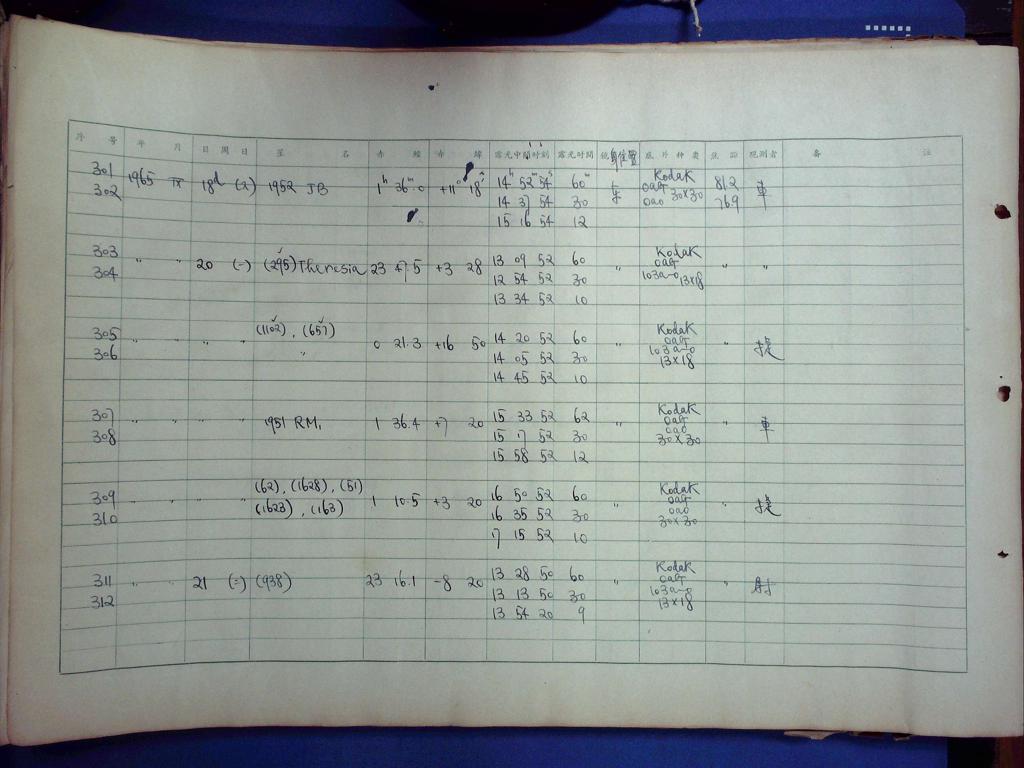 序 号 年 月 日 周 日 星 名 赤 经 赤 纬 露光中间时刻 露光时间 镜身位置 底 片 种 类 焦 距 观测者 备 注
301 1965 IX 18d 1952 JB 1h 36m.0 +11° 18' 14h 52m 54s 60m 东 Kodak 812 車
302 14 37 54 30 OaO 30×30 769
15 16 54 12
303 " " 20 (295) Theresia 23 47.5 +3 28 13 09 52 60 " Kodak " "
304 12 54 52 30 103a-O 13×18
13 34 52 10
305 " " " " (1102), (657) 0 21.3 +16 50 14 20 52 60 " Kodak "
306 " 14 05 52 30 103a-O
14 45 52 10 13×18
307 " " " " 1951 RM1 1 36.4 +7 20 15 33 52 62 " Kodak " 車
308 15 7 52 30 OaO
15 58 52 12 30×30
309 " " " " (62), (1628), (51) 1 10.5 +3 20 16 50 52 60 " Kodak "
310 (1623), (163) 16 35 52 30 OaO
7 15 52 10 30×30
311 " " 21 (938) 23 16.1 -8 20 13 28 50 60 " Kodak " 射
312 13 13 50 30 103a-O
13 54 20 9 13×18